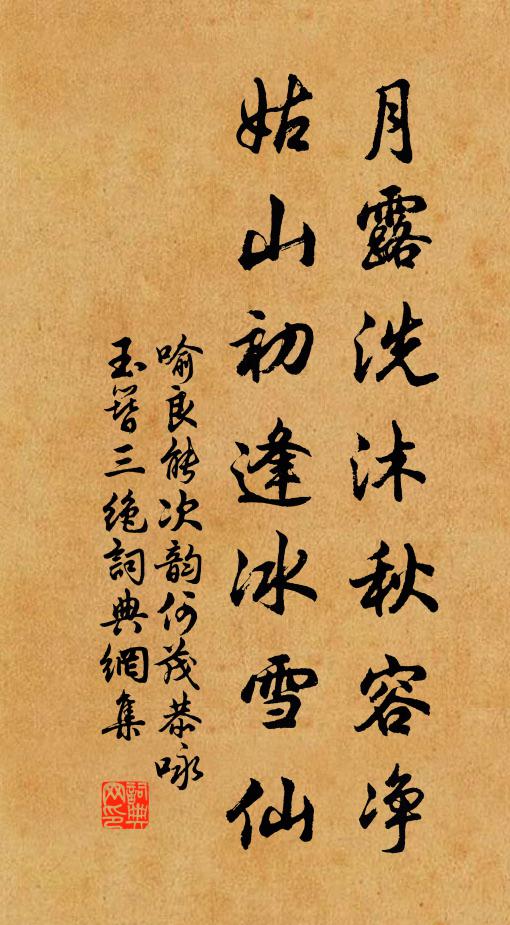 月露洗沐秋容净
姑山初逢冰雪仙
喻良能次韵何茂恭咏
玉簪三绝詞典網集
詞典网印